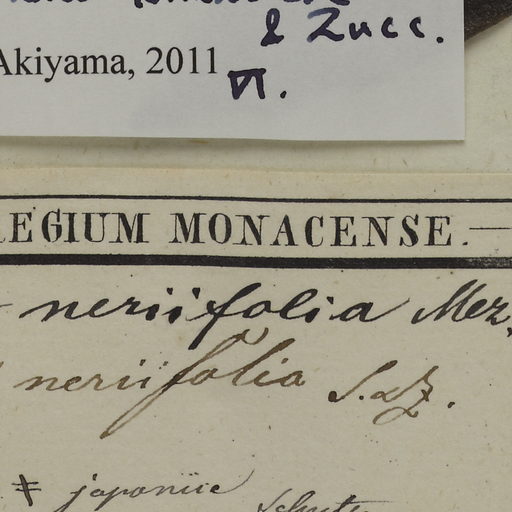 & Zucc.
Akiyama, 2011
VI.
REGIUM MONACENSE.
neriifolia Mez,
neriifolia S. & Z.
japonice